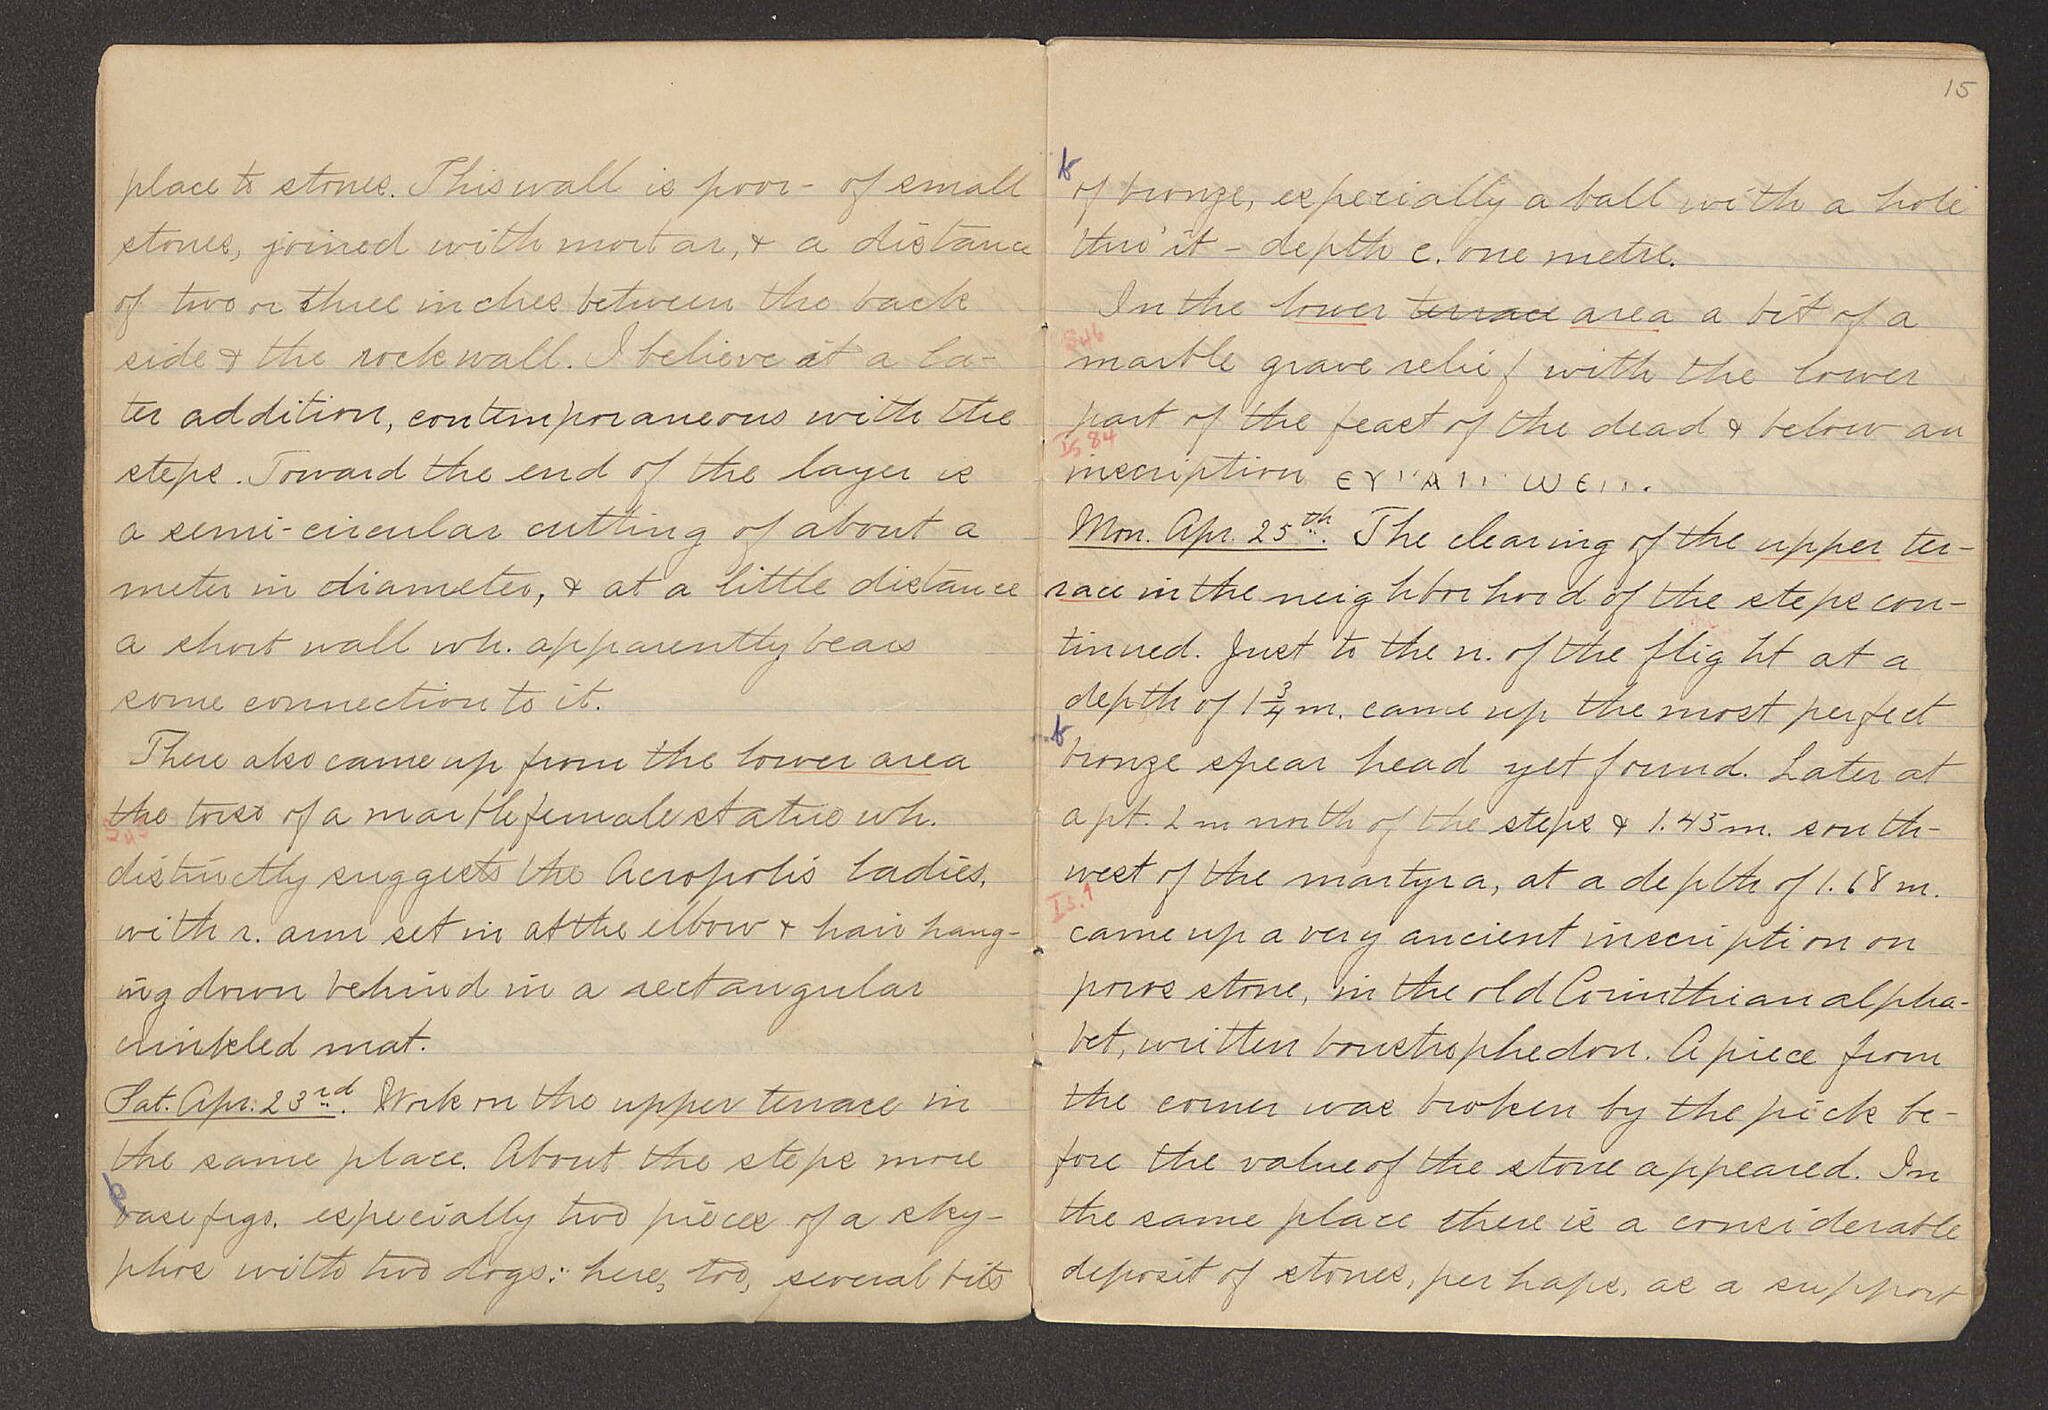 place to stones. This wall is poor - of small
stones, joined with mortar, & a distance
of two or three inches between the back
side & the rock wall. I believe it a la-
ter addition, contemporaneous with the
steps. Toward the end of the layer is
a semi-circular cutting of about a
meter in diameter, & at a little distance
a short wall wh. apparently bears
some connection to it.
There also came up from the lower area
the torso of a marble female statue wh.
distinctly suggests the Acropolis ladies,
with r. arm set in at the elbow & hair hang-
ing down behind in a rectangular
crinkled mat.
Sat. Apr. 23rd. Work on the upper terrace in
the same place. About the steps more
vase frgs. especially two pieces of a sky-
phos with two dogs: here, too, several bits
15
b
of bronze, especially a ball with a hole
thro' it - depth c. one metre.
In the lower terrace area a bit of a
marble grave relief with the lower
part of the feast of the dead & below an
Is 84
inscription ЄΥ''Α'''ωЄ...
Mon. Apr. 25th. The clearing of the upper ter-
race in the neighborhood of the steps con-
tinued. Just to the n. of the flight at a
depth of 1 3/4 m. came up the most perfect
b
bronze spear head yet found. Later at
a pt. 2 m north of the steps & 1.45 m. south-
west of the martyra, at a depth of 1.68 m.
Is. 1
came up a very ancient inscription on
poros stone, in the old Corinthian alpha-
bet, written boustrophedon. A piece from
the corner was broken by the pick be-
fore the value of the stone appeared. In
the same place there is a considerable
deposit of stones, perhaps, as a support